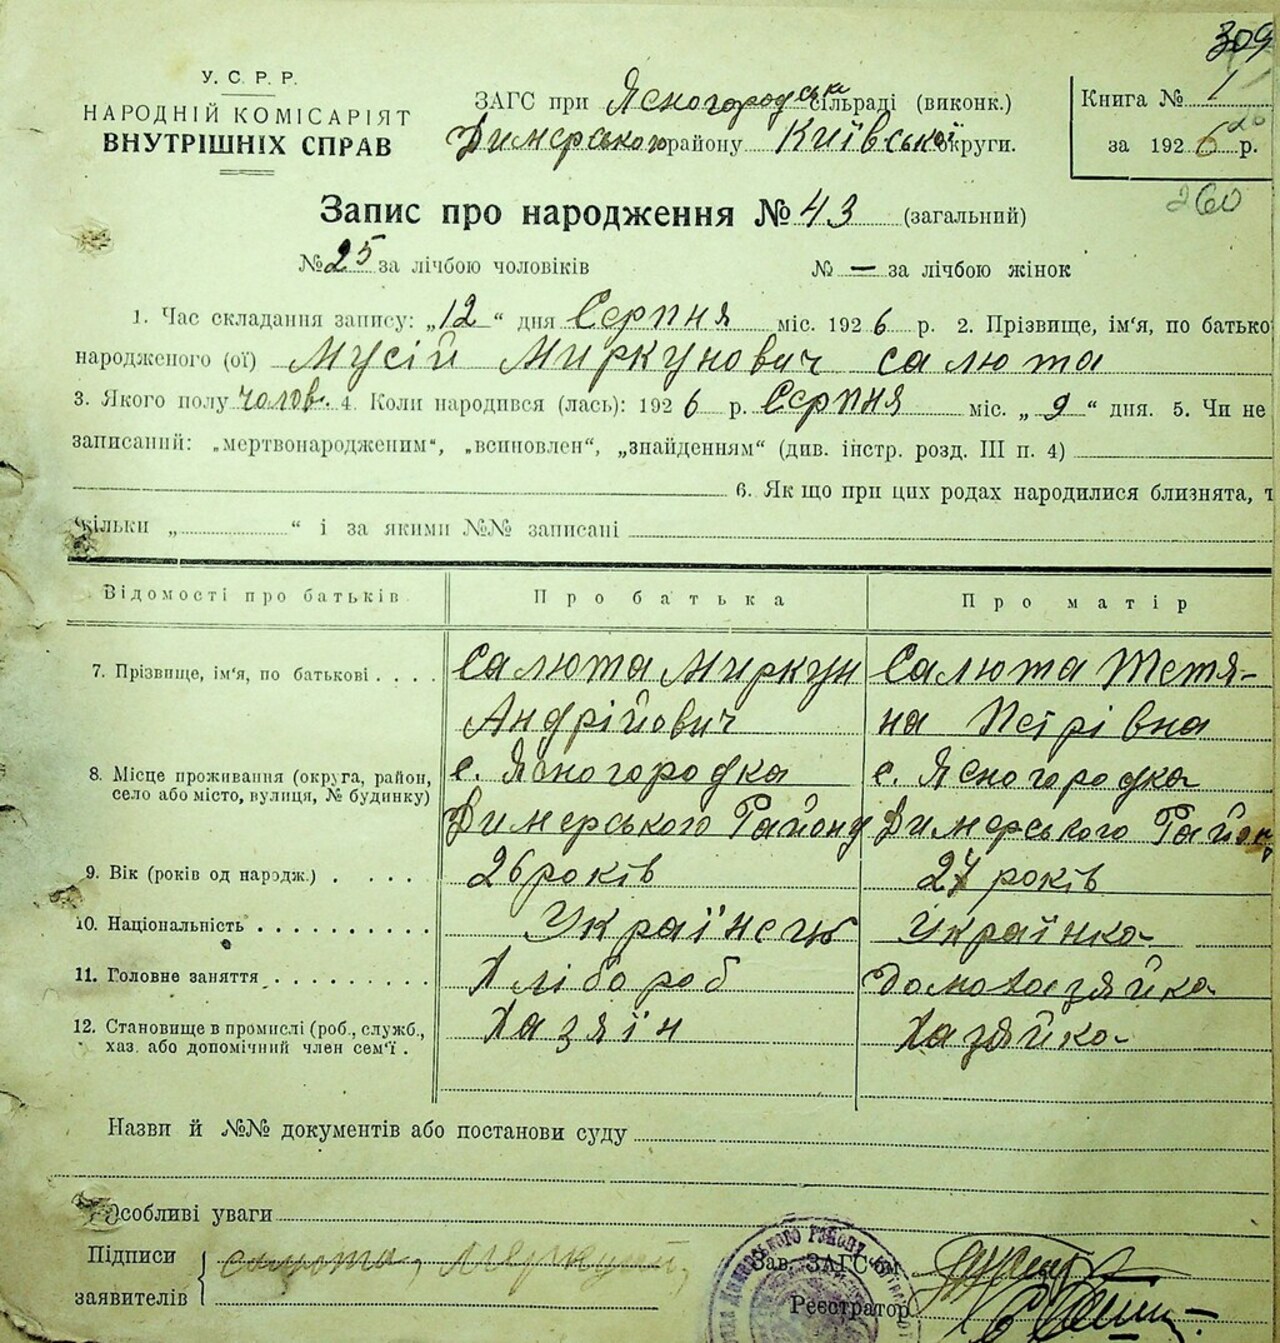 309
У. С. Р. Р.
НАРОДНІЙ КОМІСАРІЯТ
ВНУТРІШНІХ СПРАВ
ЗАГС при Ясногородськ сільраді (виконк.)
Димерського району Київської округи.
Книга № 1
за 1926 р.
260
Запис про народження № 43 (загальний)
№ 25 за лічбою чоловіків № — за лічбою жінок
1. Час складання запису: „12“ дня Серпня міс. 1926 р. 2. Прізвище, ім'я, по батько
народженого (ої) Мусій Миркунович Салюта
3. Якого полу чолов. 4. Коли народився (лась): 1926 р. Серпня міс. „9“ дня. 5. Чи не
записаний: „мертвонародженим“, „всиновлен“, „знайденням“ (див. інстр. розд. III п. 4)
6. Як що при цих родах народилися близнята, т
кільки „ “ і за якими №№ записані
Відомості про батьків Про батька Про матір
7. Прізвище, ім'я, по батькові . . . . Салюта Миркун Салюта Тетя-
Андрійович на Петрівна
8. Місце проживання (округа, район, с. Ясногородка с. Ясногородка
село або місто, вулиця, № будинку) Димерського Району Димерського Район
9. Вік (років од народж.) . . . . 26 років 24 років
10. Національність . . . . . . . . . . Українець Українка
11. Головне заняття . . . . . . . . . Хлібороб Домохазяйка
12. Становище в промислі (роб., служб., Хазяїн Хазяйка
хаз. або допомічний член сем'ї .
Назви й №№ документів або постанови суду
Особливі уваги
Підписи салюта, Меркурій,
заявителів
Зав. ЗАГС'ом
Реєстратор